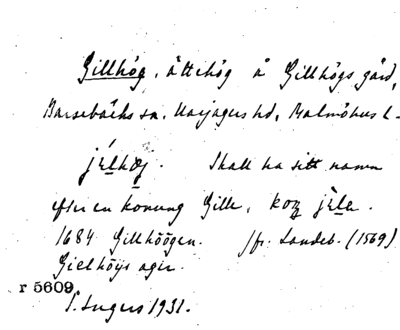 Gillhög, ättehög å Gillhögs gård,
Barsebäcks sn, Harjagers hd, Malmöhus l.
Skall ha sitt namn
efter en konung Gille,
1684 Gillhöögen. Jfr. Landeb. (1569)
Gielhöijs ager.
r 5609
S. Ingers 1931.